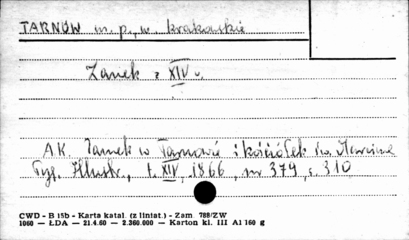 TARNÓW m. p., w. krakowskie
Zamek z XIV w.
AK. Zamek w Tarnowie i kościółek św. Marcina
Tyg. Illustr., t. XIV, 1866, nr 379, s. 310
CWD - B 15b - Karta katal. (z liniat.) - Zam 788/ZW
1060 — ŁDA — 21.4.60 — 2.360.000 — Karton kl. III A1 160 g